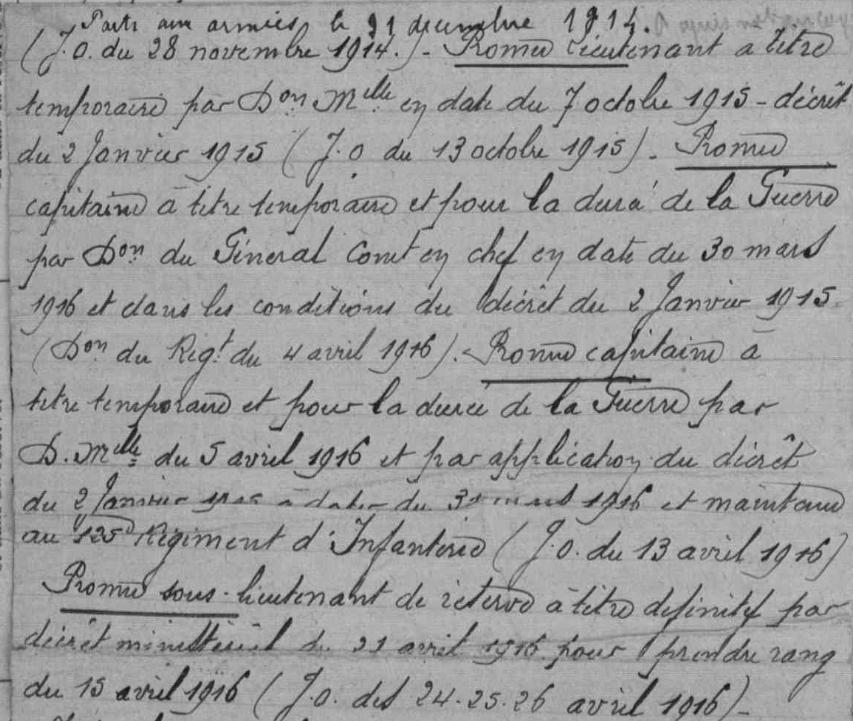 Parti aux armées le 11 décembre 1914.
(J.O. du 28 novembre 1914.) - Promu lieutenant a titre
temporaire par Don Melle en date du 7 octobre 1915 - décrêt
du 2 Janvier 1915 (J.O du 13 octobre 1915) - Promu
capitaine à titre temporaire et pour la duré de la Guerre
par Don du Géneral Comt en chef en date du 30 mars
1916 et dans les conditions du décrêt du 2 Janvier 1915.
(Don du Regt du 4 avril 1916). Promu capitaine à
titre temporaire et pour la durée de la Guerre par
D. Melle du 5 avril 1916 et par application du décrêt
du 2 Janvier 1915 à dater du 30 mars 1916 et maintenu
au 125e Régiment d'Infanterie (J.O. du 13 avril 1916)
Promu sous-lieutenant de réserve à titre definitif par
décrêt ministériel du 21 avril 1916 pour prendre rang
du 15 avril 1916 (J.O. des 24-25-26 avril 1916) -